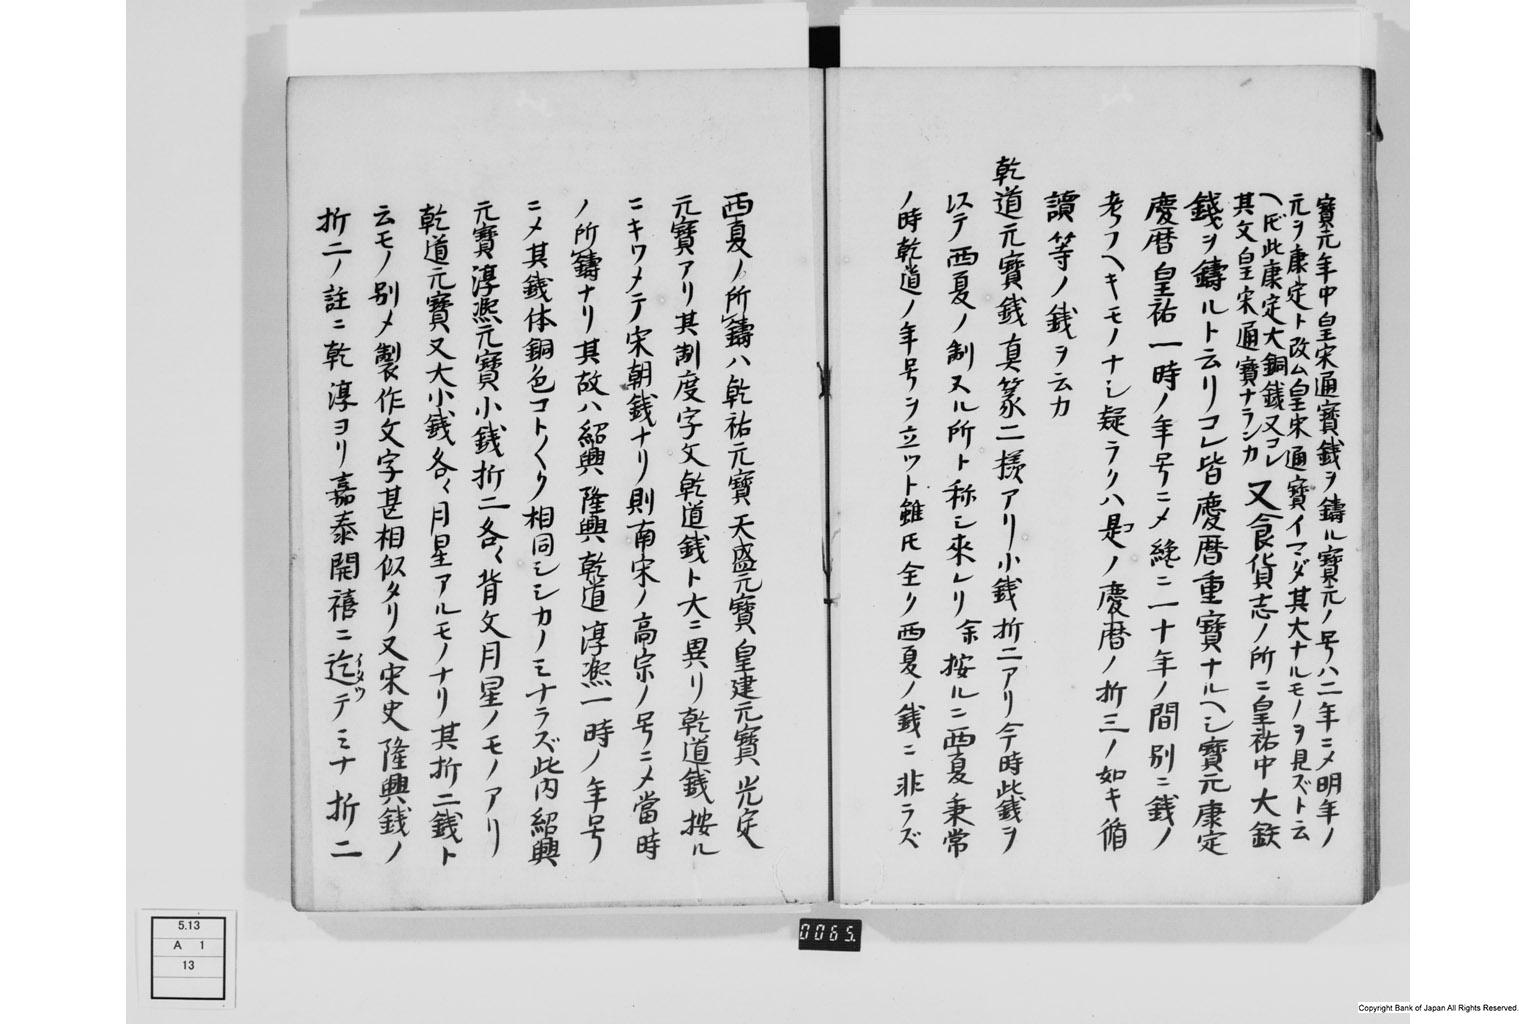 寳元年中皇宋通寳銭ヲ鑄ル寳元ノ号ハ二年ニメ明年ノ
元ヲ康定ト改ム皇宋通寳イマダ其大ナルモノヲ見ズト云
ヘ𪜈此康定大銅銭又コレ
其文皇宋通寳ナランカ 又食貨志ノ所ニ皇祐中大鉄
銭ヲ鑄ルト云リコレ皆慶暦重寳ナルヘシ寳元康定
慶暦皇祐一時ノ年号ニメ纔ニ一十年ノ間別ニ銭ノ
考フヘキモノナシ疑ラクハ是ノ慶暦ノ折三ノ如キ循
讀等ノ銭ヲ云カ
乾道元寳銭真篆二様アリ小銭折二アリ今時此銭ヲ
以テ西夏ノ制スル所ト称シ來レリ余按ルニ西夏秉常
ノ時乾道ノ年号ヲ立ツト雖𪜈全ク西夏ノ銭ニ非ラズ
西夏ノ所鑄ハ乾祐元寳天盛元寳皇建元寳光定
元寳アリ其制度字文乾道銭ト大ニ異リ乾道銭按ル
ニキワメテ宋朝銭ナリ則南宋ノ高宗ノ号ニメ當時
ノ所鑄ナリ其故ハ紹興隆興乾道淳熈一時ノ年号
ニメ其銭体銅色コト〱ク相同シシカノミナラズ此内紹興
元寳淳熈元寳小銭折二各〻背文月星ノモノアリ
乾道元寳又大小銭各〻月星アルモノナリ其折二銭ト
云モノ別メ製作文字甚相似タリ又宋史隆興銭ノ
折二ノ註ニ乾淳ヨリ嘉泰開禧ニ迄イタツデミナ折二
0065.
5.13
A 1
13
Copyright Bank of Japan All Rights Reserved.